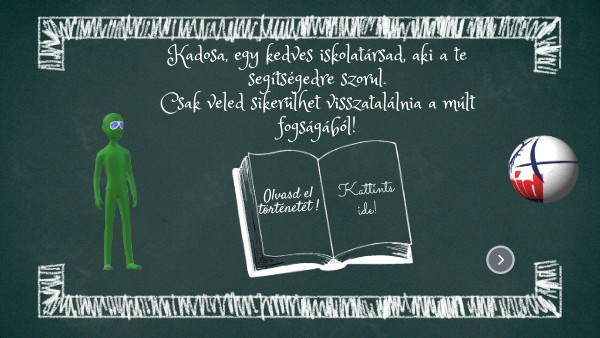 Kadosa, egy kedves iskolatársad, aki a te
segítségedre szorul.
Csak veled sikerülhet visszatalálnia a múlt
fogságából!
Olvasd el
történetét !
Kattints
ide!